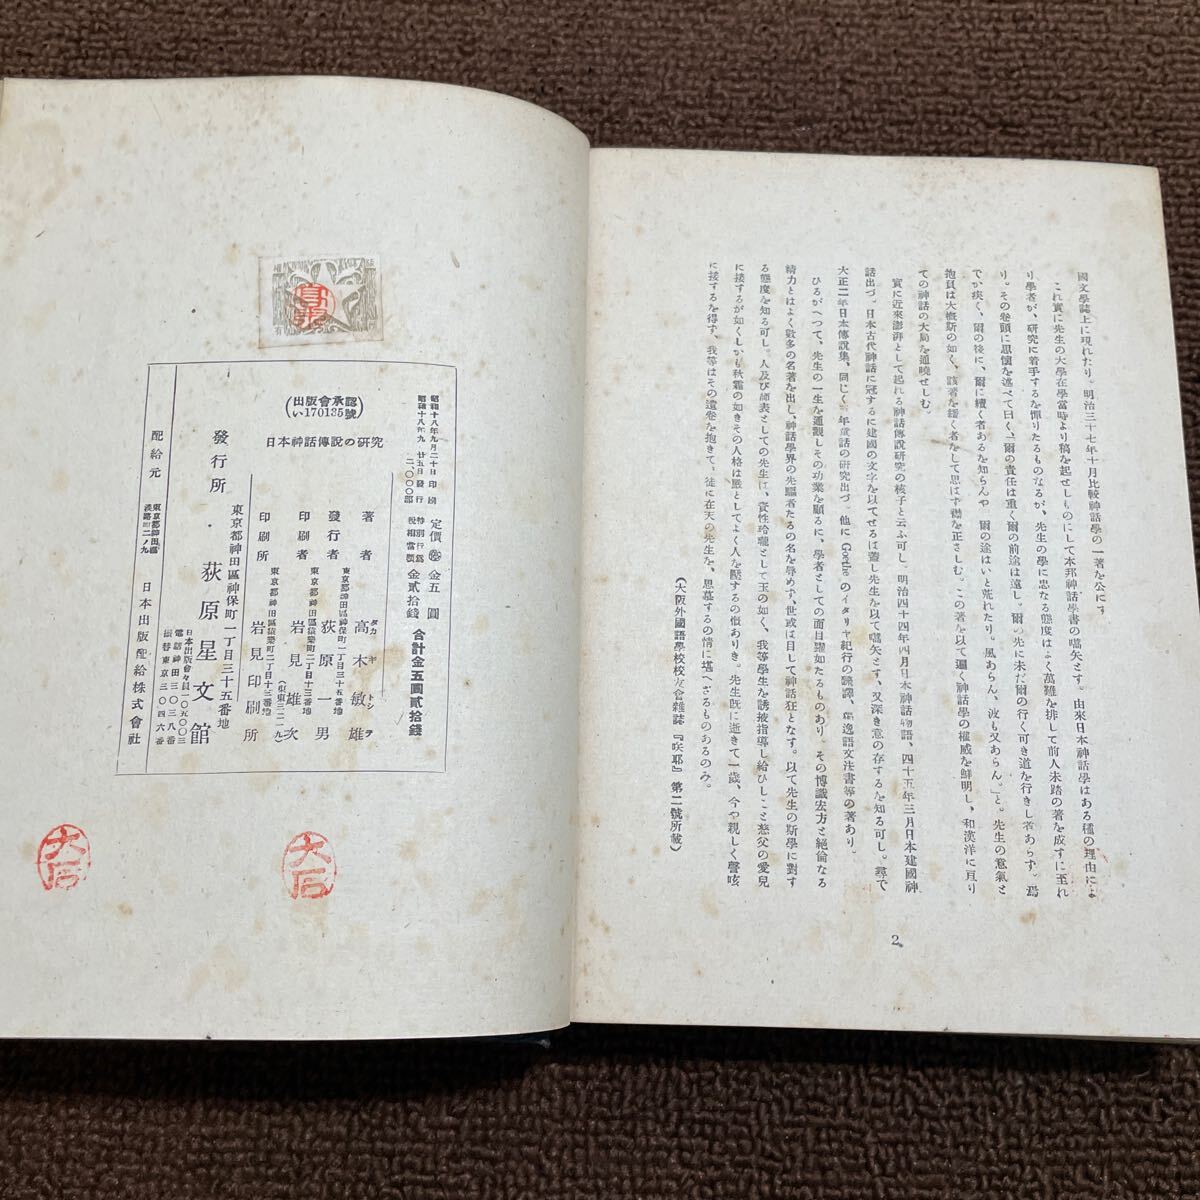 國文學誌上に現れたり。明治三十七年十月比較神話學の一著を公にす
これ實に先生の大學在學當時より稿を起せしものにして本邦神話學書の嚆矢とす。由來日本神話學はある種の理由によ
り學者が、研究に着手するを憚りたるものなるが、先生の學に忠なる態度はよく萬難を排して前人未踏の著を成すに至れ
り。その卷頭に思懷を述べて曰く、「爾の責任は重く爾の前途は遠し。爾の先に未だ爾の行く可き道を行きし者あらず。爲
でか疾く、爾の後に、爾に續く者あるを知らんや 爾の途はいと荒れたり。風あらん、波も又あらん。」と。先生の意氣と
抱負は大槪斯の如く、該著を繙く者をして思はず襟を正さしむ。この著を以て遍く神話學の權威を鮮明し、和漢洋に亘り
ての神話の大局を通曉せしむ。
實に近來澎湃として起れる神話傳說硏究の核子と云ふ可し、明治四十四年四月日本神話物語、四十五年三月日本建國神
話出づ。日本古代神話に冠するに建國の文字を以てせるは蓋し先生を以て嚆矢とす、又深き意の存するを知る可し。尋で
大正二年日本傳說集、同じく 年童話の硏究出づ。他に Goethe のイタリヤ紀行の飜譯、獨逸語文注書等の著あり。
ひるがへつて、先生の一生を通觀しその功業を顧るに、學者としての面目躍如たるものあり。その博識宏方と絕倫なる
精力とはよく數多の名著を出し、神話學界の先驅者たるの名を辱めず、世或は目して神話狂となす。以て先生の斯學に對す
る態度を知る可し。人及び師表としての先生は、資性玲瓏として玉の如く、我等學生を誘掖指導し給ひしこと慈父の愛兒
に接するが如くしかも秋霜の如きその人格は嚴としてよく人を壓するの慨ありき。先生旣に逝きて一歲、今や親しく謦咳
に接するを得ず、我等はその遺卷を抱きて、徒に在天の先生を、思慕するの情に堪へざるものあるのみ。
(大阪外國語學校校友會雜誌『咲耶』第二號所載)
2
昭和十八年九月二十日印刷
昭和十八年九月廿五日發行
二、〇〇〇部
定價 金五圓
特別行爲稅相當額 金貳拾錢
合計金五圓貳拾錢
(出版會承認い170135號)
日本神話傳說の硏究
著者 高木敏雄
タカ ギ トシ ヲ
東京都神田區神保町一丁目三十五番地
發行者 荻原一男
東京都神田區猿樂町二丁目十三番地
印刷者 岩見雄次
(東東三二一九)
東京都神田區猿樂町二丁目十三番地
印刷所 岩見印刷所
東京都神田區神保町一丁目三十五番地
發行所・荻原星文館
日本出版會々員一〇五〇〇三
電話神田三〇三八番
振替東京三〇四六番
配給元 東京都神田區淡路町二ノ九 日本出版配給株式會社
大石
大石